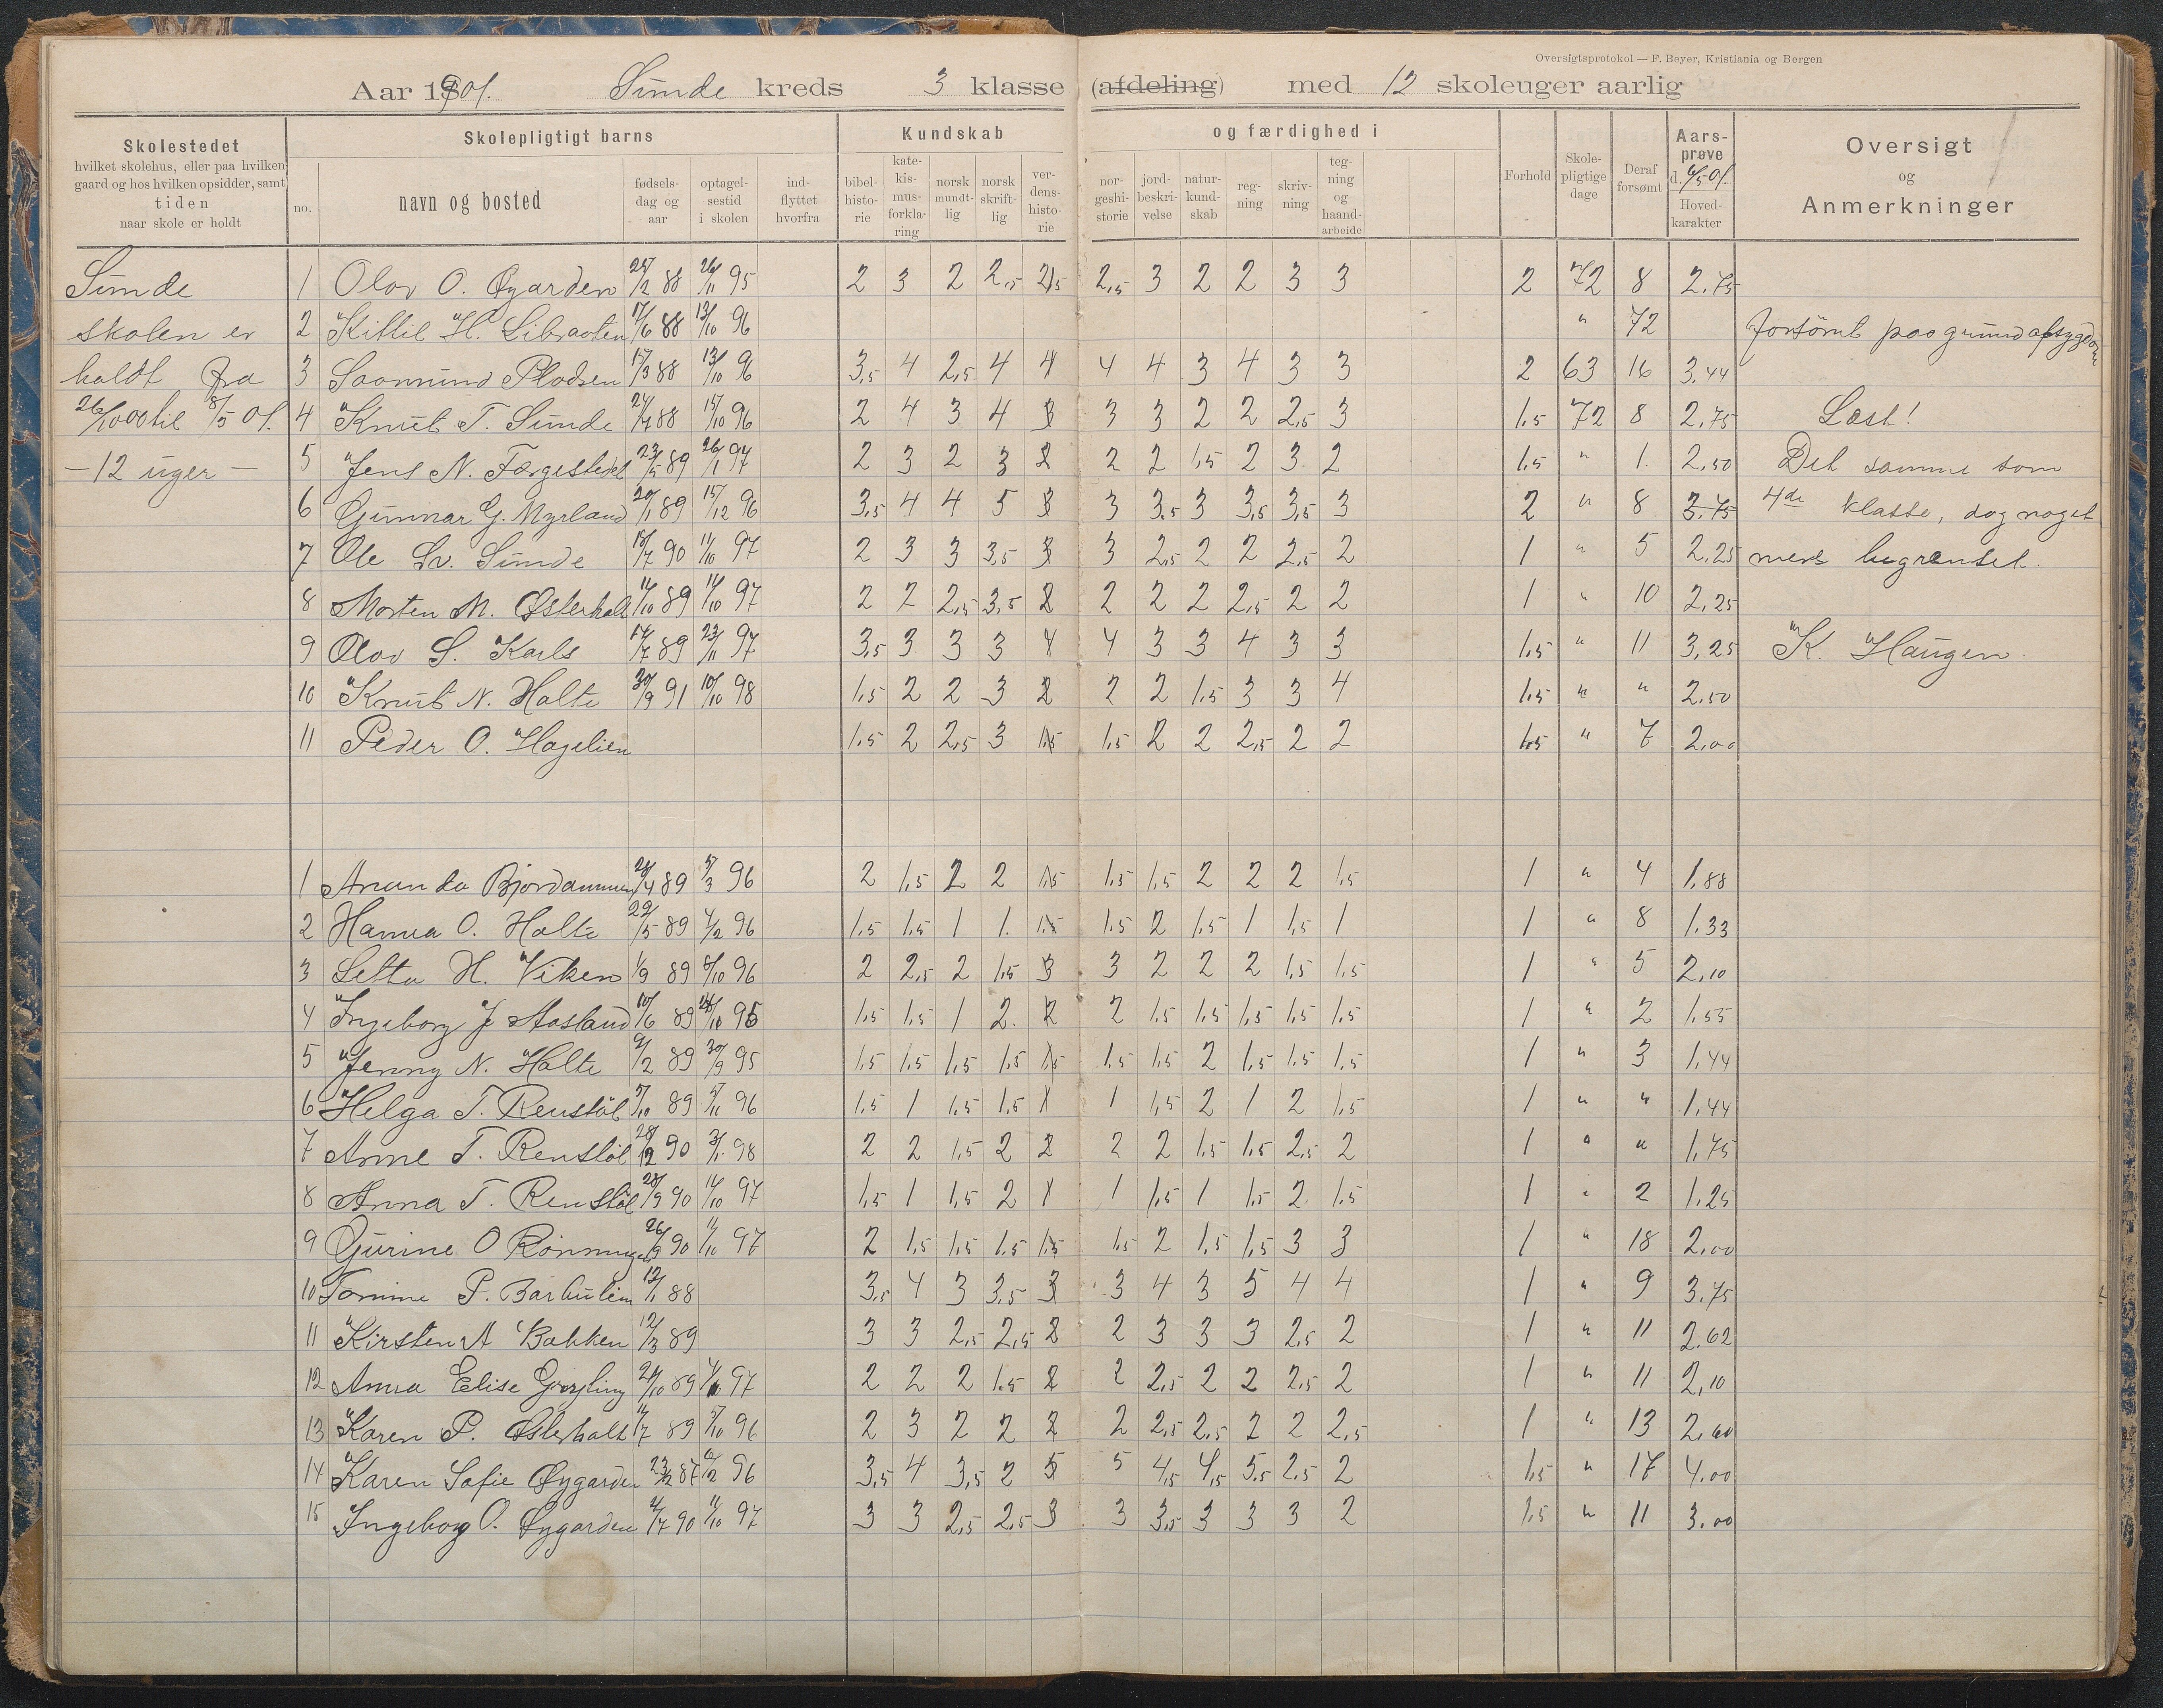 Oversigtsprotokol — F. Beyer, Kristiania og Bergen
Aar 1901. Sunde kreds 3 klasse (afdeling) med 12 skoleuger aarlig
Skolestedet hvilket skolehus, eller paa hvilken gaard og hos hvilken opsidder, samt tiden naar skole er holdt
Skolepligtigt barns
no. navn og bosted fødsels-dag og aar optagel-sestid i skolen ind-flyttet hvorfra
Kundskab og færdighed i
bibel-histo-rie kate-kis-mus-forkla-ring norsk mundt-lig norsk skrift-lig ver-dens-histo-rie nor-geshi-storie jord-beskri-velse natur-kund-skab reg-ning skriv-ning teg-ning og haand-arbeide
Forhold Skole-pligtige dage Deraf forsømt Aars-prøve d. 6/5 01. Hoved-karakter
Oversigt og Anmerkninger
Sunde
skolen er
holdt fra
26/10 00 til 8/5 01.
— 12 uger —
1 Olav O. Øygarden 25/2 88 26/11 95 2 3 2 2,5 2,5 2,5 3 2 2 3 3 2 72 8 2,75
2 Kittil H. Libraaten 17/6 88 13/10 96 " 72 forsömt paa grund af sygdom
3 Saamund Pladsen 17/3 88 13/10 96 3,5 4 2,5 4 4 4 4 3 4 3 3 2 63 16 3,44
4 Knut T. Sunde 24/4 88 15/10 96 2 4 3 4 3 3 3 2 2 2,5 3 1,5 72 8 2,75 Læst!
5 Jens N. Færgestad 23/5 89 26/1 97 2 3 2 3 2 2 2 1,5 2 3 2 1,5 " 1. 2,50 Det samme som
6 Gunnar G. Myrland 20/1 89 15/12 96 3,5 4 4 5 3 3 3,5 3 3,5 3,5 3 2 " 8 3,75 4de klasse, dog noget
7 Ole Sv. Sunde 18/7 90 11/10 97 2 3 3 3,5 3 3 2,5 2 2 2,5 2 1 " 5 2,25 mere begrænset.
8 Morten M. Østerholt 11/10 89 11/10 97 2 2 2,5 3,5 2 2 2 2 2,5 2 2 1 " 10 2,25
9 Olav S. Karls 14/7 89 23/11 97 3,5 3 3 3 4 4 3 3 4 3 3 1,5 " 11 3,25 K. Haugen.
10 Knut N. Holte 30/9 91 10/10 98 1,5 2 2 3 2 2 2 1,5 3 3 4 1,5 " " 2,50
11 Peder O. Hagelien 1,5 2 2,5 3 1,5 1,5 2 2 2,5 2 2 1,5 " 7 2,00
1 Ananda Bjordammen 28/4 89 5/3 96 2 1,5 2 2 1,5 1,5 1,5 2 2 2 1,5 1 " 4 1,88
2 Hanna O. Holte 29/5 89 4/2 96 1,5 1,5 1 1. 1,5 1,5 2 1,5 1 1,5 1 1 " 8 1,33
3 Setta H. Viken 1/9 89 8/10 96 2 2,5 2 1,5 3 3 2 2 2 1,5 1,5 1 " 5 2,10
4 Ingeborg J Aasland 10/6 89 95 1,5 1,5 1 2. 2 2 1,5 1,5 1,5 1,5 1,5 1 " 2 1,55
5 Jenny N. Holte 9/2 89 30/9 95 1,5 1,5 1,5 1,5 1,5 1,5 1,5 2 1,5 1,5 1,5 1 " 3 1,44
6 Helga T. Renstöl 5/10 89 5/11 96 1,5 1 1,5 1,5 1 1 1,5 2 1 2 1,5 1 " " 1,44
7 Anne T. Renstöl 28/12 90 3/1 98 2 2 1,5 2 2 2 2 1,5 1,5 2,5 2 1 " " 1,75
8 Anna T. Renstöl 28/9 90 11/10 97 1,5 1 1,5 2 1 1 1,5 1 1,5 2 1,5 1 " 2 1,25
9 Gurine O Rönningen 26/9 90 11/10 97 2 1,5 1,5 1,5 1,5 1,5 2 1,5 1,5 3 3 1 " 18 2,00
10 Tomine P. Barhulien 12/1 88 3,5 4 3 3,5 3 3 4 3 5 4 4 1 " 9 3,75
11 Kirsten A Bakken 12/3 89 3 3 2,5 2,5 2 2 3 3 3 2,5 2 1 " 11 2,62
12 Anna Elise 24/10 89 97 2 2 2 1,5 2 2 2,5 2 2 2,5 2 1 " 11 2,10
13 Karen P. Østerholt 11/7 89 5/10 96 2 3 2 2 2 2 2,5 2,5 2 2 2,5 1 " 13 2,60
14 Karen Sofie Øygarden 23/12 87 6/12 96 3,5 4 3,5 2 5 5 4,5 4,5 5,5 2,5 2 1,5 " 17 4,00
15 Ingeborg O. Øygarden 4/7 90 11/10 97 3 3 2,5 2,5 3 3 3,5 3 3 3 2 1,5 " 11 3,00